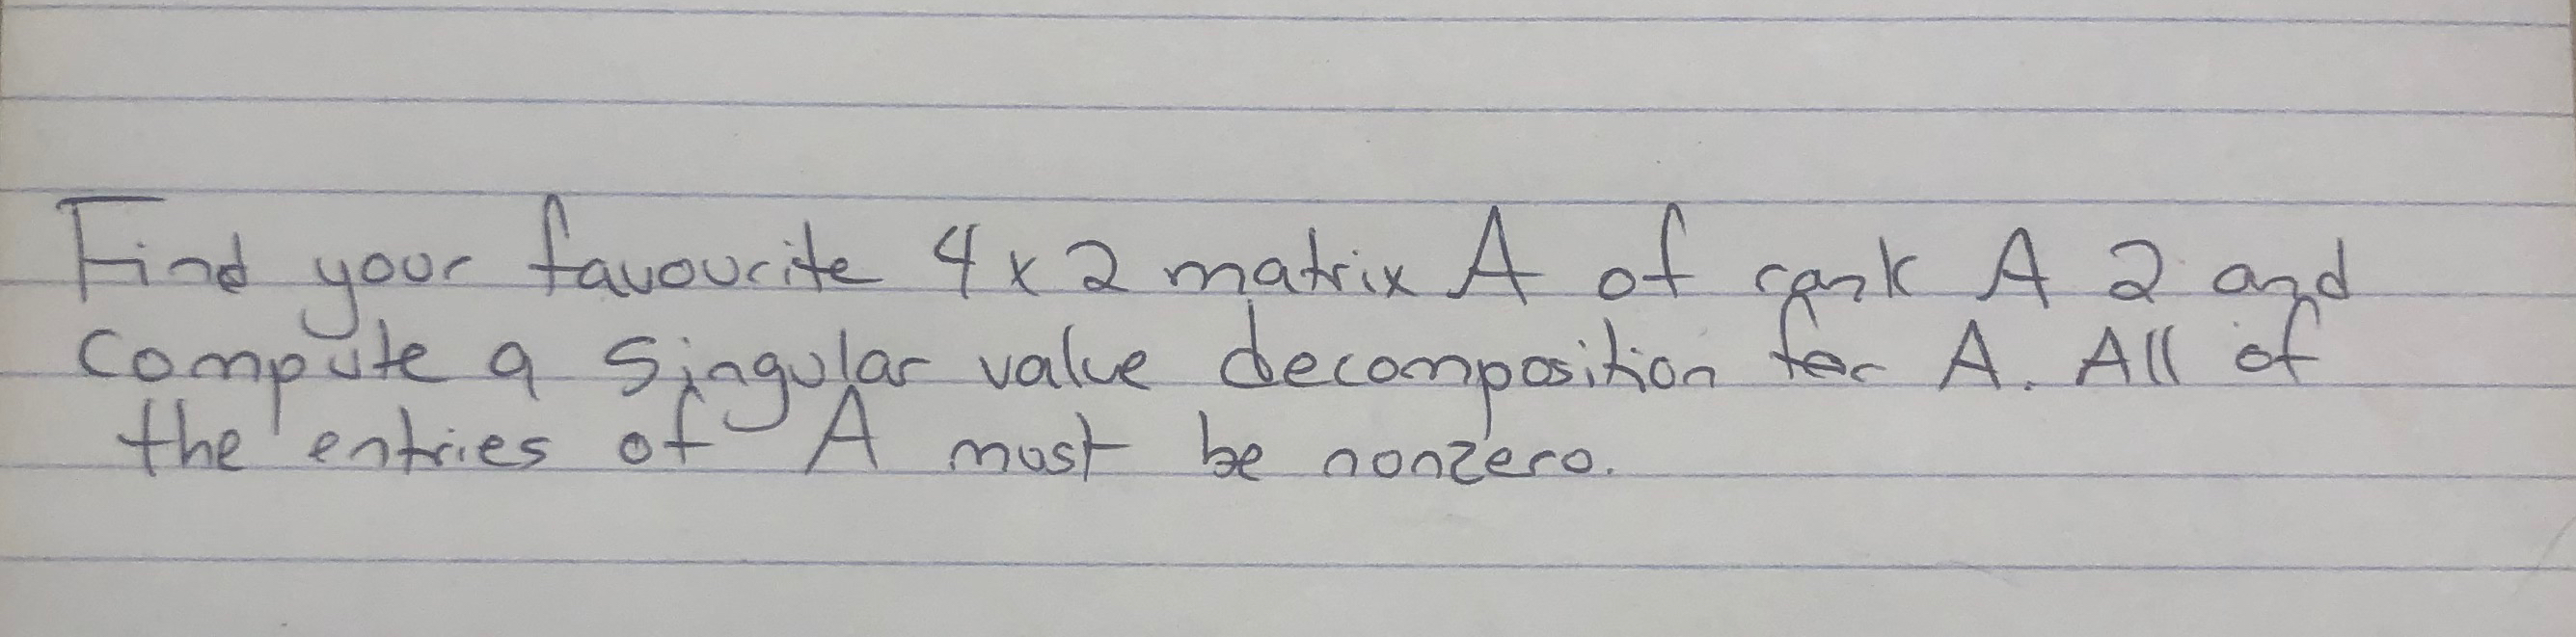 Find your favourite 4 x 2 matrix A of rank A 2 and
compute a singular value decomposition for A. All of
the entries of A must be nonzero.